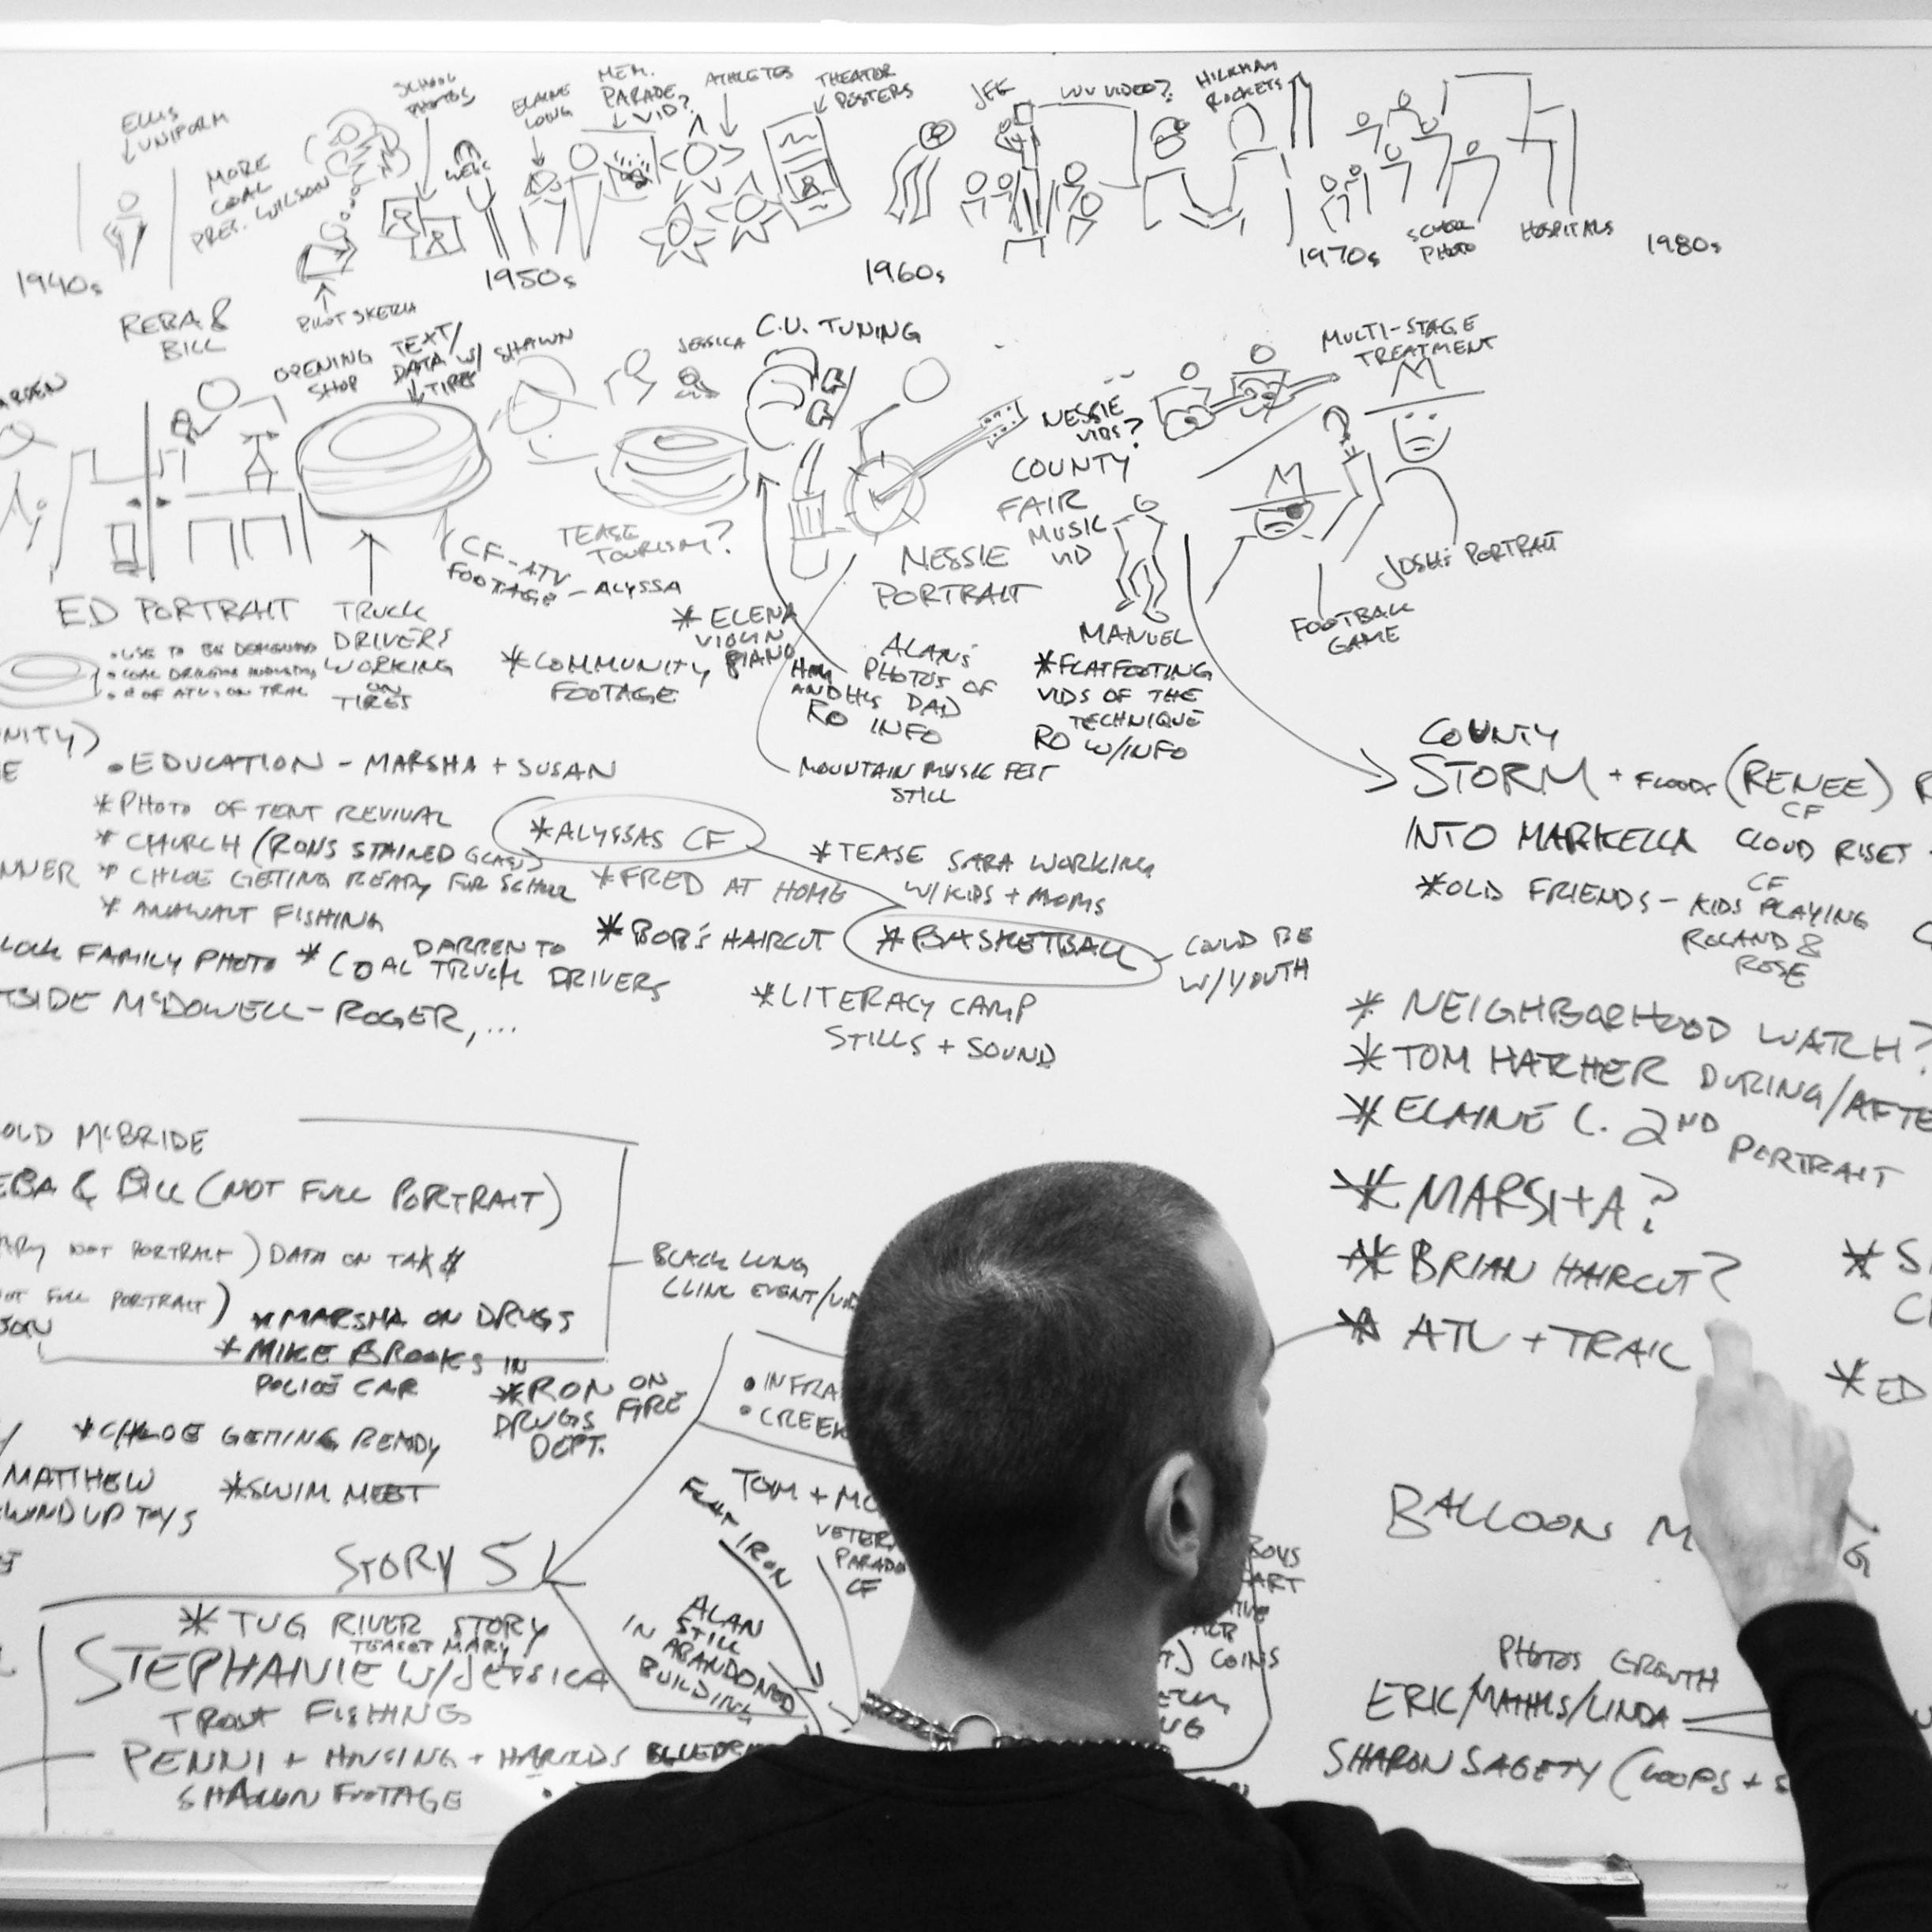 ELLIS
UNIFORM
MORE
COAL
PRES. WILSON
SCHOOL
PHOTOS
ELAINE
LONG
MEM.
PARADE
VID?
ATHLETES
THEATER
POSTERS
JFK
VIDEO?
HILKMAN
ROCKETS
1940s
1950s
1960s
1970s
SCHOOL
PHOTO
HOSPITALS
1980s
REBA &
BILL
PILOT SKETCH
OPENING
SHOP
TEXT/
DATA W/ SHAWN
TIRES
JESSICA
C.U. TUNING
NESSIE
VIDS?
COUNTY
FAIR
MUSIC
VID
MULTI-STAGE
TREATMENT
JOSH'S PORTRAIT
FOOTBALL
GAME
ED PORTRAIT
TRUCK
DRIVERS
WORKING
ON
TIRES
CF-ATV
FOOTAGE - ALYSSA
TEASE
TOURISM?
NESSIE
PORTRAIT
MANUEL
* FLATFOOTING
VIDS OF THE
TECHNIQUE
RO W/INFO
• USE TO BE
• # OF ATVs ON TRAIL
* COMMUNITY
FOOTAGE
* ELENA
VIOLIN
PIANO
HIM
AND HIS DAD
RO INFO
ALAN'S
PHOTOS OF
MOUNTAIN MUSIC FEST
STILL
• EDUCATION - MARSHA + SUSAN
* PHOTO OF TENT REVIVAL
* CHURCH (RONS STAINED GLASS)
* CHLOE GETING READY FOR SCHOOL
* ANAWALT FISHING
FAMILY PHOTO
* COAL TRUCK DRIVERS
DARREN TO
MCDOWELL - ROGER, ...
* ALYSSAS CF
* FRED AT HOME
* BOB'S HAIRCUT
* BASKETBALL
COULD BE
W/YOUTH
* TEASE SARA WORKING
W/KIDS + MOMS
* LITERACY CAMP
STILLS + SOUND
COUNTY
STORM + FLOODS (RENEE)
CF
INTO MARKELLA CLOUD RISES
* OLD FRIENDS - KIDS PLAYING
CF
ROLAND &
ROSE
* NEIGHBORHOOD WATCH?
* TOM HATCHER DURING/AFTE
* ELAINE C. 2ND PORTRAIT
* MARSHA?
* BRIAN HAIRCUT?
* ATV + TRAIL
* ED
OLD MCBRIDE
EBA & BILL (NOT FULL PORTRAIT)
NOT PORTRAIT) DATA ON TAX $
OT FULL PORTRAIT)
* MARSHA ON DRUGS
* MIKE BROOKS IN
POLICE CAR
* RON ON
DRUGS FIRE
DEPT.
BLACK LUNG
CLINIC EVENT/VID
• INFRA
• CREEK
* CHLOE GETTING READY
MATTHEW
WIND UP TOYS
* SWIM MEET
TOM + MO
VETER
PARADE
CF
FLAT IRON
STORY 5
* TUG RIVER STORY
TEASE MARY
STEPHANIE W/JESSICA
TROUT FISHING
PENNI + HOUSING + HAROLDS BLUEPRI
SHAWN FOOTAGE
ALAN
STILL
IN ABANDONED
BUILDING
COINS
BALLOONS M
PHOTOS GROWTH
ERIC/MATHIS/LINDA
SHARON SAGETY (LOOPS + S